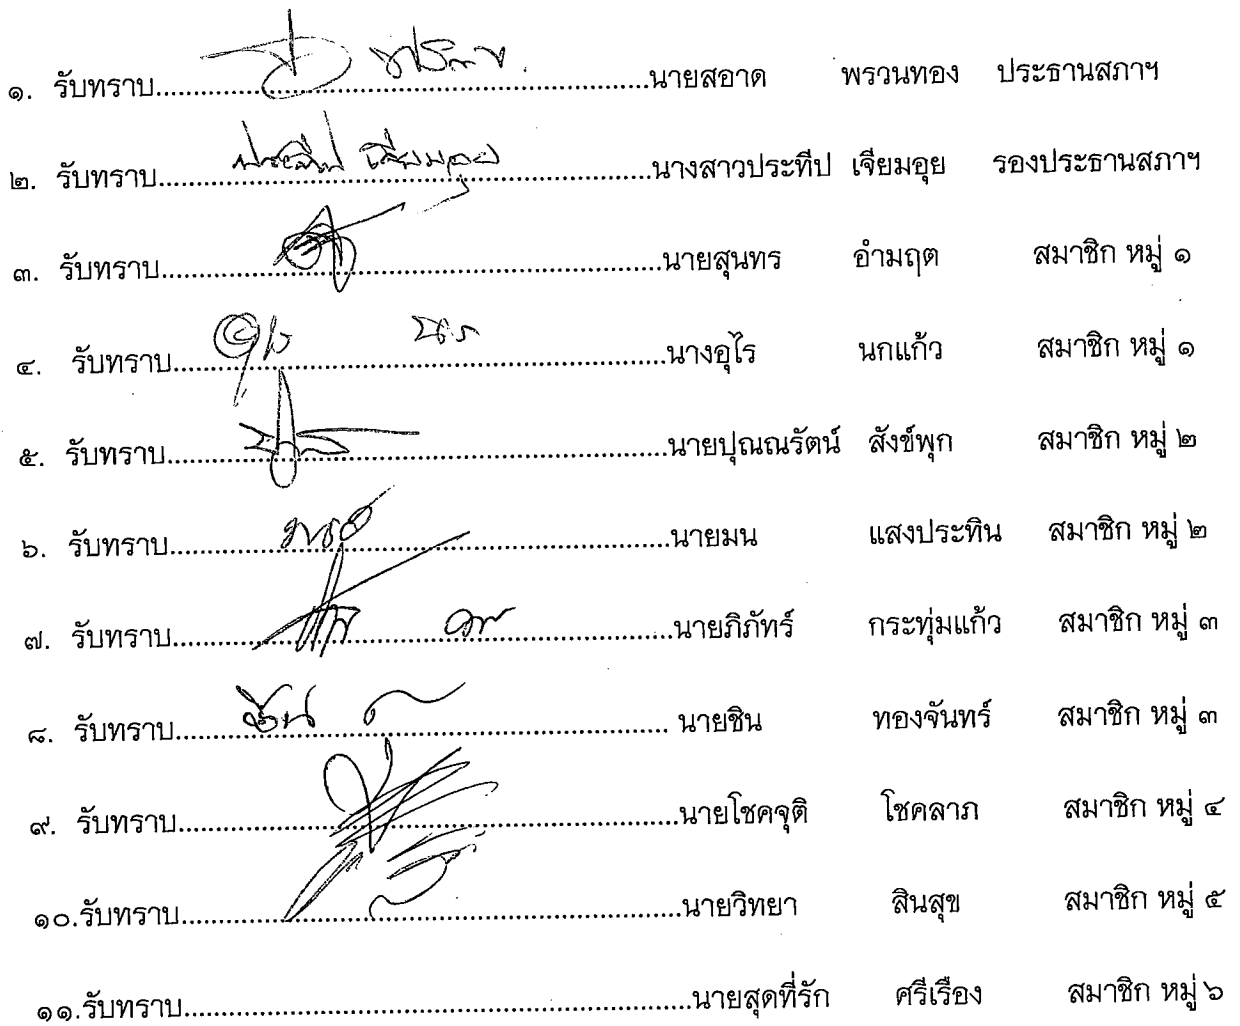 ๑. รับทราบ............................................................นายสอาด พรวนทอง ประธานสภาฯ
๒. รับทราบ ประทีป เจียมอุย............................................................นางสาวประทีป เจียมอุย รองประธานสภาฯ
๓. รับทราบ............................................................นายสุนทร อำมฤต สมาชิก หมู่ ๑
๔. รับทราบ............................................................นางอุไร นกแก้ว สมาชิก หมู่ ๑
๕. รับทราบ............................................................นายปุณณรัตน์ สังข์พุก สมาชิก หมู่ ๒
๖. รับทราบ............................................................นายมน แสงประทิน สมาชิก หมู่ ๒
๗. รับทราบ............................................................นายภิภัทร์ กระทุ่มแก้ว สมาชิก หมู่ ๓
๘. รับทราบ ชิน............................................................ นายชิน ทองจันทร์ สมาชิก หมู่ ๓
๙. รับทราบ............................................................นายโชคจุติ โชคลาภ สมาชิก หมู่ ๔
๑๐.รับทราบ............................................................นายวิทยา สินสุข สมาชิก หมู่ ๕
๑๑.รับทราบ............................................................นายสุดที่รัก ศรีเรือง สมาชิก หมู่ ๖